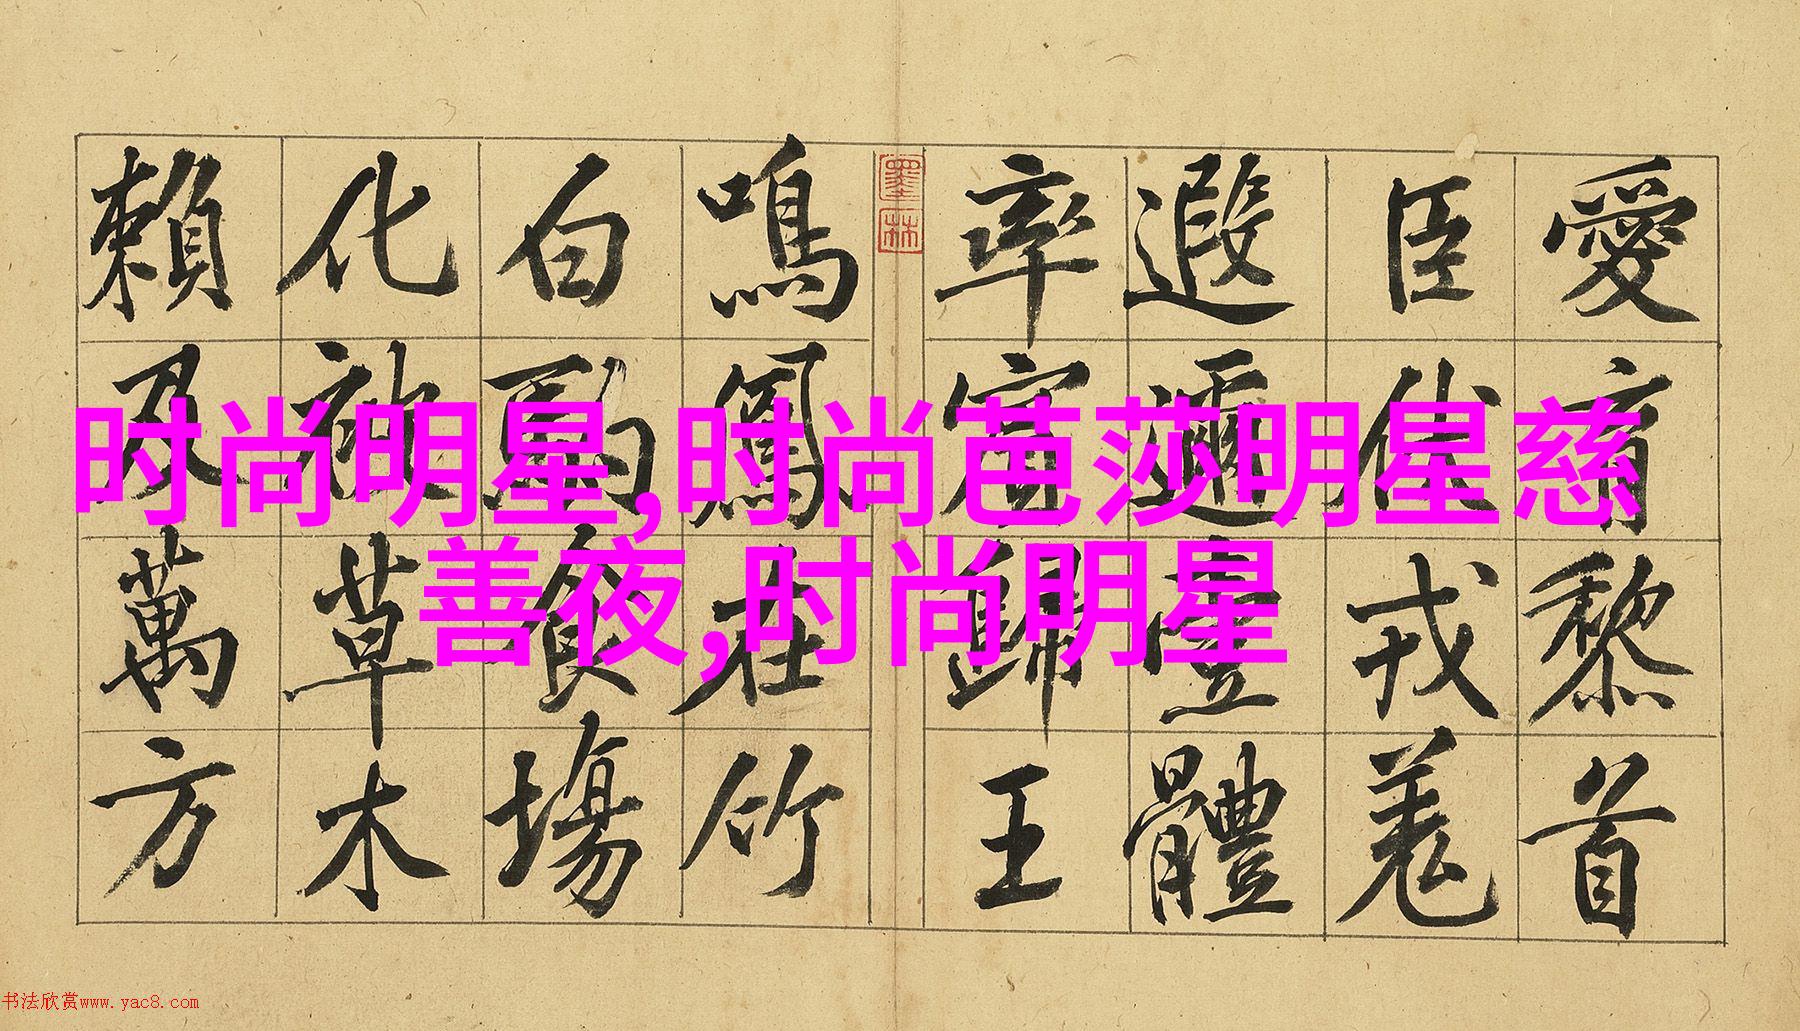 愛育黎首
臣伏戎羌
遐邇壹體
率賓歸王
墨林
鳴鳳在竹
白駒食場
化被草木
賴及萬方
时尚明星,时尚芭莎明星慈
善夜,时尚明星
书法欣赏www.yac8.com